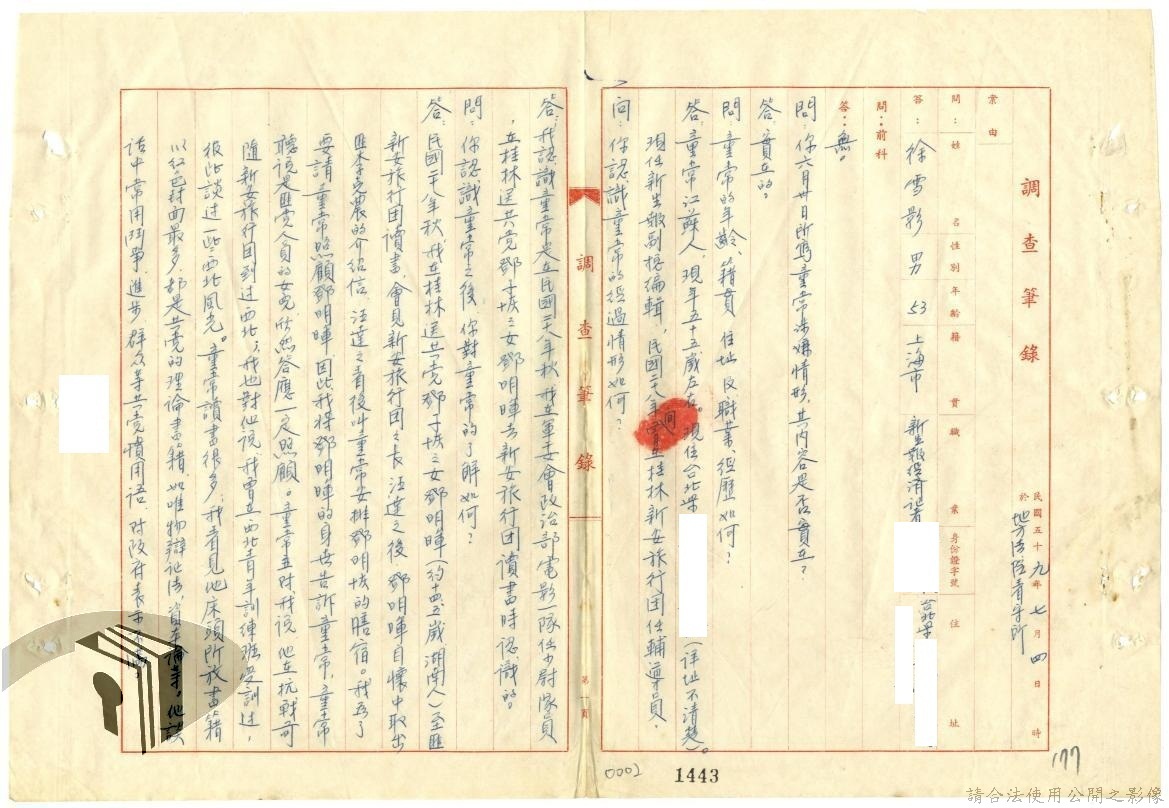 調查筆錄
民國五十九年七月四日 時
於 地方法院看守所
案由
問：姓名 性別 年齡 籍貫 職業 身份證字號 住址
答：徐雪影 男 53 上海市 新生報經濟記者 台北市
問：前科
答：無。
問：你六月廿日所寫童常涉嫌情形，其內容是否實在？
答：實在的。
問：童常的年齡、籍貫、住址及職業、經歷如何？
答：童常江蘇人，現年五十五歲左右。現住台北市（詳址不清楚）。
現任新生報副總編輯，民國二八年 在桂林新安旅行团任輔導員。
問：你認識童常的經過情形如何？
0002
1443
177
調查筆錄
第 頁
答：我認識童常是在民國二八年秋，我在軍委會政治部電影一隊任少尉隊員
，在桂林送共党鄧子恢之女鄧明暉去新安旅行团讀書時認識的。
問：你認識童常之後，你對童常的了解如何？
答：民國二八年秋，我在桂林送共党鄧子恢之女鄧明暉（約十四五歲湖南人）至匪
新安旅行团讀書，會見新安旅行团之長汪達之後，鄧明暉自懷中取出
匪李克農的介紹信，汪達之看後叫童常安排鄧明 的膳宿。我為了
要請童常照顧鄧明暉，因此我將鄧明暉的身世告訴童常，童常
聽說是匪党人員的女兒欣然答應一定照顧。童常並對我說，他在抗戰前
隨新安旅行团到过西北；我也對他說，我曾在西北青年訓練班受訓过，
彼此談过一些西北風光。童常讀書很多，我看見他床頭所放書籍
以紅色封面最多，都是共党的理論書籍，如唯物辯証法，資本論等。他談
話中常用鬥爭、進步、群众等共党慣用語，对政府表示不滿。
請合法使用公開之影像